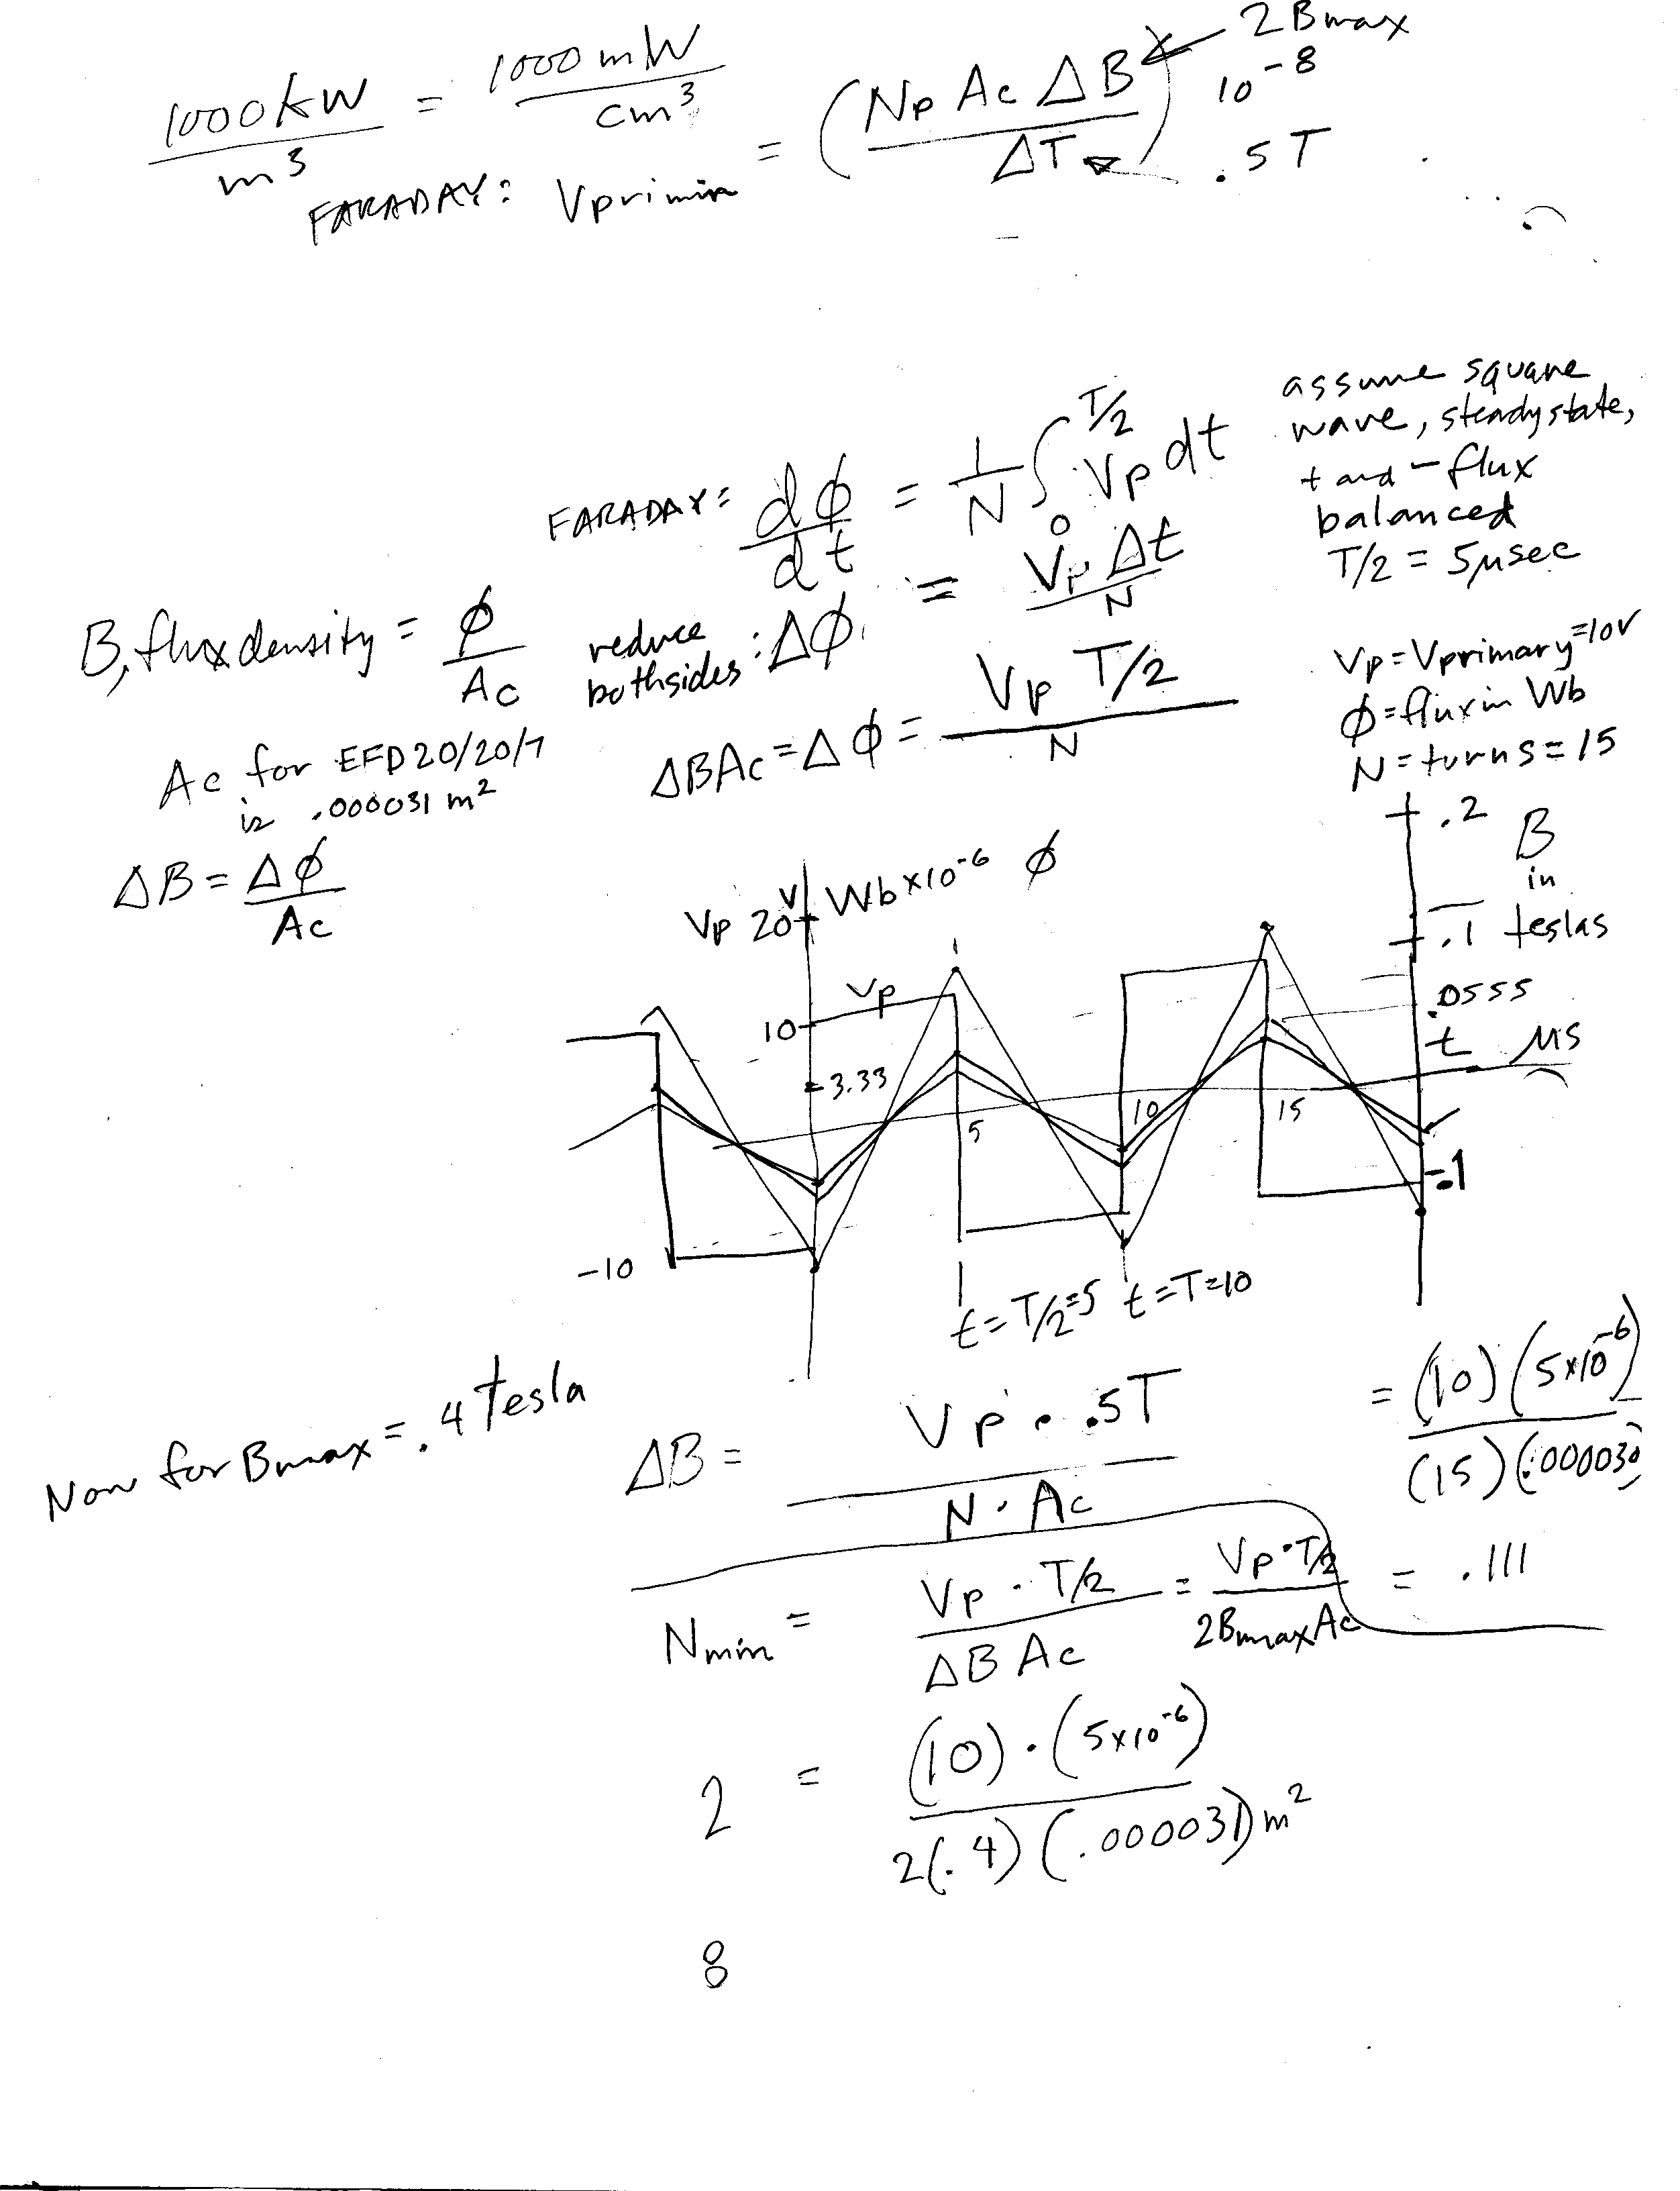 1000kW / m³ = 1000mW / cm³
FARADAY: Vprimin = (Np Ac ΔB / ΔT) 10⁻⁸
2Bmax
.5T
assume square
wave, steadystate,
+ and - flux
balanced
T/2 = 5μsec
FARADAY: dφ/dt = 1/N ∫₀^T/2 Vp dt
B, flux density = φ/Ac
reduce
bothsides: Δφ = Vp Δt / N
Vp = Vprimary=10V
φ=flux in Wb
N=turns=15
Ac for EFD20/20/7
is .000031 m²
ΔBAc = Δφ = Vp T/2 / N
ΔB = Δφ / Ac
Vp 20 V
Wb×10⁻⁶ φ
.2
B
in
teslas
.1
Vp
10
.0555
t μs
3.33
5
10
15
-.1
-10
t=T/2=5
t=T=10
Now for Bmax = .4 tesla
ΔB = Vp • .5T / N · Ac
= (10)(5×10⁻⁶) / (15)(.000030)
= .111
Nmin = Vp · T/2 / ΔB Ac = Vp·T/2 / 2BmaxAc
2 = (10)·(5×10⁻⁶) / 2(.4)(.000031)m²
8